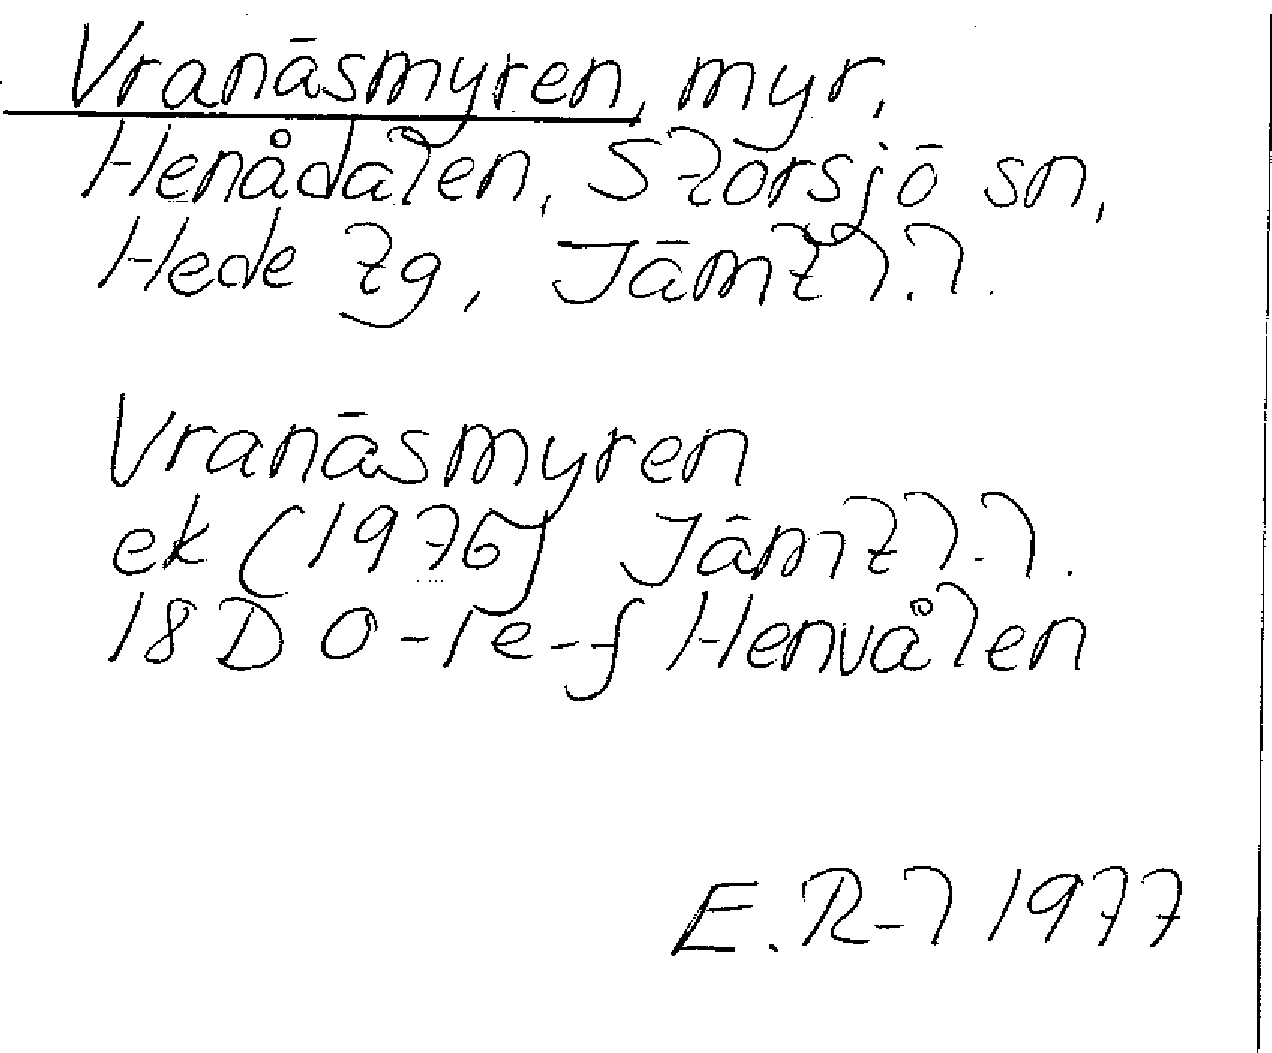 Vranäsmyren, myr,
Henådalen, Storsjö sn,
Hede tg, Jämtl.l.
Vranäsmyren
ek (1976) Jämtl.l.
18D 0-1e-f Henvålen
E.R-l 1977